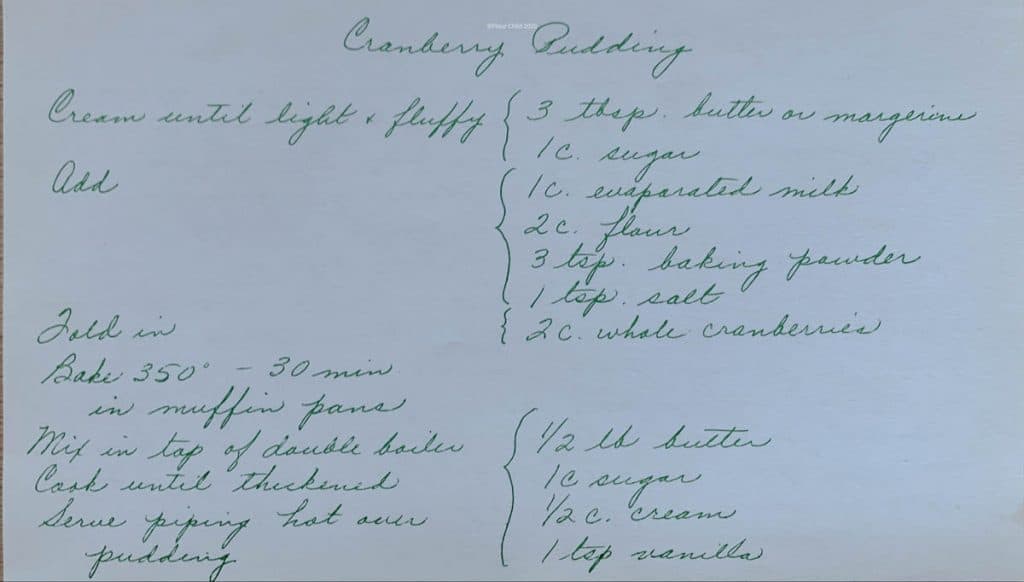 ©Flour Child 2021
Cranberry Pudding
Cream until light & fluffy { 3 tbsp. butter or margerine
1 c. sugar
Add { 1 c. evaporated milk
2 c. flour
3 tsp. baking powder
1 tsp. salt
Fold in { 2 c. whole cranberries
Bake 350° - 30 min
in muffin pans
Mix in top of double boiler { 1/2 lb butter
Cook until thickened 1 c sugar
Serve piping hot over 1/2 c. cream
pudding 1 tsp vanilla